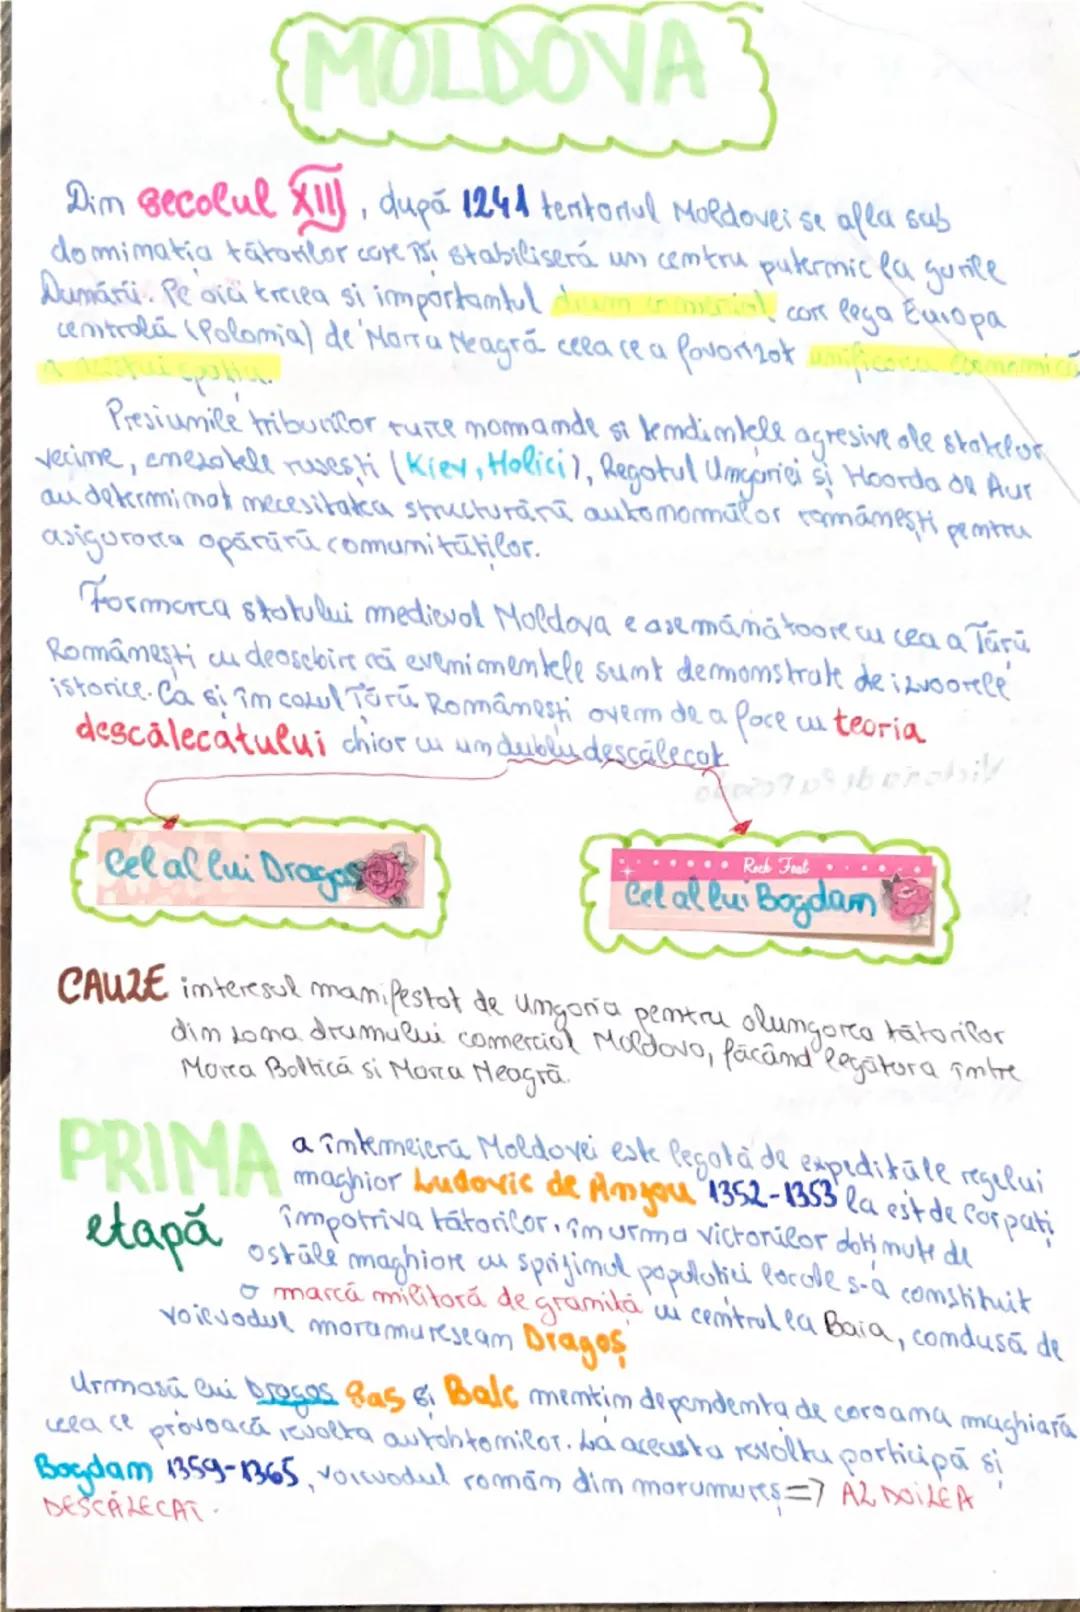 MOLDOVA
Din secolul XIII, după 1241 teritoriul Moldovei se afla sub
dominația tătarilor care își stabiliseră un centru puternic la gurile
Dunării. Pe aici trecea si importantul drum comercial care lega Europa
centrală (Polonia) de Marea Neagră ceea ce a favorizat unificarea economică
a acestui spațiu.
Presiunile triburilor nomande si tendințele agresive ale statelor
vecine, cnezatele rusești (Kiev, Halici), Regatul Ungariei și Hoarda de Aur
au determinat necesitatea structurării autonomiilor românești pentru
asigurarea apărării comunităților.
Formarea statului medieval Moldova e asemănătoare cu cea a Țării
Românești cu deosebire că evenimentele sunt demonstrate de izvoarele
istorice. Ca și în cazul Țării Românești avem de a face cu teoria
descălecatului chiar cu un dublu descălecat
Cel al lui Dragoș
Rock Feat
Cel al lui Bogdan
CAUZE interesul manifestat de Ungaria pentru alungarea tătarilor
din zona drumului comercial Moldova, făcând legătura între
Marea Baltică si Marea Neagră.
PRIMA a întemeierii Moldovei este legată de expedițiile regelui
etapă maghior Ludovic de Anjou 1352-1353 la est de Carpați
împotriva tătarilor. în urma victoriilor obținute de
ostile maghiare cu sprijinul populației locale s-a constituit
o marcă militară de graniță cu centrul la Baia, condusă de
voievodul maramureșean Dragoș
Urmașii lui Dragoș Sas și Balc mentin dependența de coroana maghiară
ceea ce provoacă revolta autohtonilor. La aceasta revoltă participă și
Bogdan 1359-1365, voievodul român din maramureș => AL DOILEA
DESCĂLECAT.